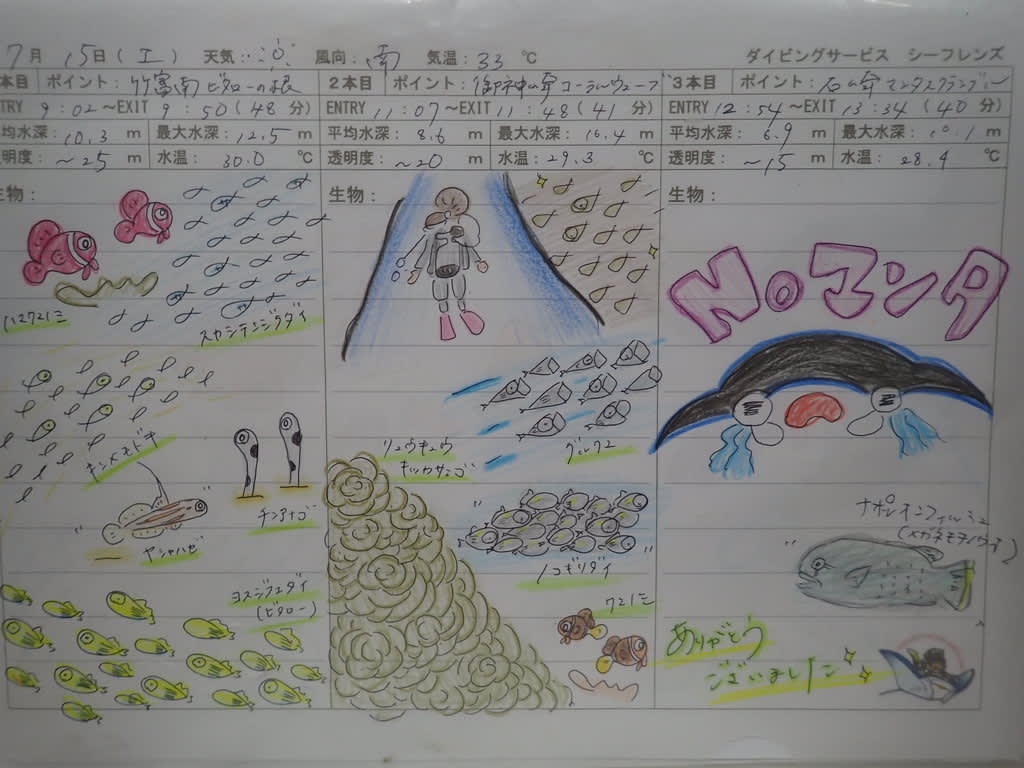 7月 15日(土) 天気: 風向:南 気温:33 ℃ ダイビングサービス シーフレンズ
本目 ポイント: 竹富南ビタローの根
NTRY 9:02~EXIT 9:50(48 分)
平均水深:10.3 m 最大水深:12.5 m
透明度:~25 m 水温: 30.0 ℃
生物:
ハマクマノミ
スカシテンジクダイ
キンメモドキ
チンアナゴ
ヤシャハゼ
ヨスジフエダイ
(ビタロー)
2本目 ポイント: 御神崎コーラルウェーブ
ENTRY 11:07~EXIT 11:48(41 分)
平均水深: 8.6 m 最大水深:16.4 m
透明度:~20 m 水温:29.3 ℃
生物:
リュウキュウ
キッカサンゴ
グルクン
ノコギリダイ
クマノミ
3本目 ポイント: 石崎マンタスクランブル
ENTRY 12:54~EXIT 13:34(40 分)
平均水深: 6.9 m 最大水深:10.1 m
透明度: ~15 m 水温: 28.4 ℃
生物:
Noマンタ
ナポレオンフィッシュ
(メガネモチノウオ)
ありがとう
ございました